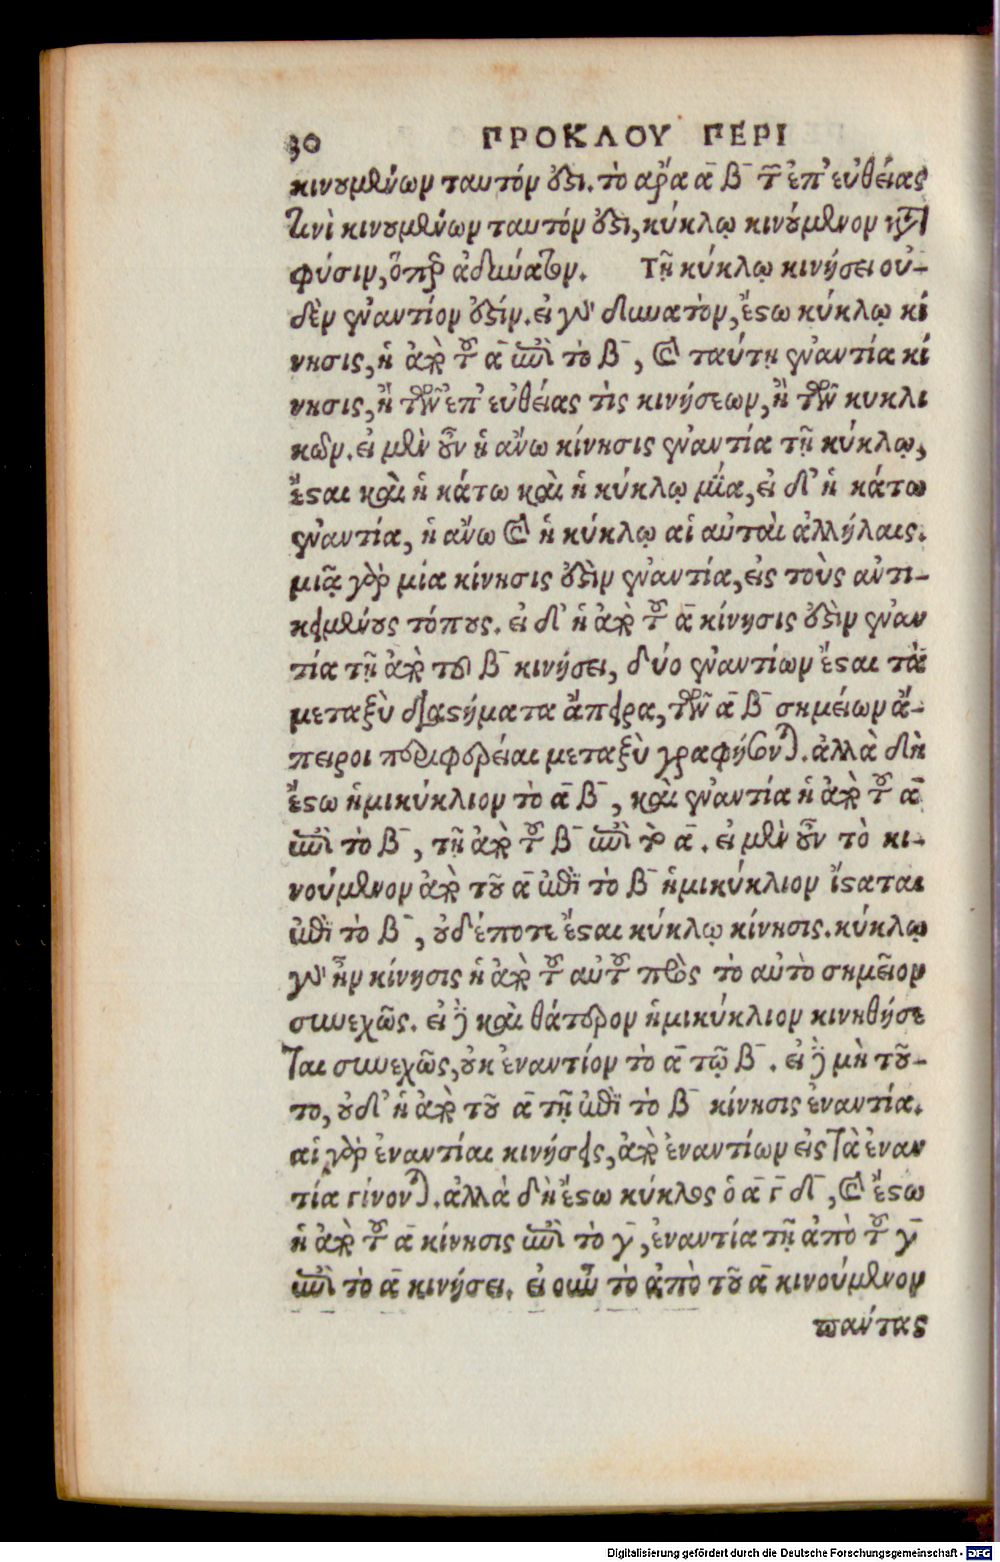 30 ΠΡΟΚΛΟΥ ΠΕΡΙ
κινουμένων ταυτόν ἐστι. τὸ ἄρα α̅ β̅ τῶν ἐπ' εὐθείας
τινὶ κινουμένων ταυτόν ἐστι, κύκλῳ κινούμενον κατὰ
φύσιν, ὅπερ ἀδύνατον. Τῇ κύκλῳ κινήσει οὐ-
δὲν ἐναντίον ἐστίν. εἰ γὰρ δυνατὸν, ἔστω κύκλῳ κί
νησις, ἡ ἀπὸ τοῦ α̅ ἐπὶ τὸ β̅, καὶ ταύτῃ ἐναντία κί
νησις, ἢ τῶν ἐπ' εὐθείας τὶς κινήσεων, ἢ τῶν κυκλι
κῶν. εἰ μὲν οὖν ἡ ἄνω κίνησις ἐναντία τῇ κύκλῳ,
ἔσται καὶ ἡ κάτω καὶ ἡ κύκλῳ μία, εἰ δ' ἡ κάτω
ἐναντία, ἡ ἄνω καὶ ἡ κύκλῳ αἱ αὐταὶ ἀλλήλαις.
μιᾷ γὰρ μία κίνησις ἐστὶν ἐναντία, εἰς τοὺς ἀντι-
κειμένους τόπους. εἰ δ' ἡ ἀπὸ τοῦ α̅ κίνησις ἐστὶν ἐναν
τία τῇ ἀπὸ τοῦ β̅ κινήσει, δύο ἐναντίων ἔσται τὰ
μεταξὺ διαστήματα ἄπειρα, τῶν α̅ β̅ σημείων ἄ-
πειροι περιφέρειαι μεταξὺ γραφήσονται. ἀλλὰ δὴ
ἔστω ἡμικύκλιον τὸ α̅ β̅, καὶ ἐναντία ἡ ἀπὸ τοῦ α̅
ἐπὶ τὸ β̅, τῇ ἀπὸ τοῦ β̅ ἐπὶ τὸ α̅. εἰ μὲν οὖν τὸ κι-
νούμενον ἀπὸ τοῦ α̅ ἐπὶ τὸ β̅ ἡμικύκλιον ἵσταται
ἐπὶ τὸ β̅, οὐδέποτε ἔσται κύκλῳ κίνησις. κύκλῳ
γὰρ ἦν κίνησις ἡ ἀπὸ τοῦ αὐτοῦ πρὸς τὸ αὐτὸ σημεῖον
συνεχῶς. εἰ δὲ καὶ θάτερον ἡμικύκλιον κινηθήσε
ται συνεχῶς, οὐκ ἐναντίον τὸ α̅ τῷ β̅. εἰ δὲ μὴ τοῦ-
το, οὐδ' ἡ ἀπὸ τοῦ α̅ τῇ ἐπὶ τὸ β̅ κίνησις ἐναντία.
αἱ γὰρ ἐναντίαι κινήσεις, ἀπὸ ἐναντίων εἰς τὰ ἐναν
τία γίνονται. ἀλλὰ δὴ ἔστω κύκλος ὁ α̅ γ̅ δ̅, καὶ ἔστω
ἡ ἀπὸ τοῦ α̅ κίνησις ἐπὶ τὸ γ̅, ἐναντία τῇ ἀπὸ τοῦ γ̅
ἐπὶ τὸ α̅ κινήσει. εἰ οὖν τὸ ἀπὸ τοῦ α̅ κινούμενον
πάντας
Digitalisierung gefördert durch die Deutsche Forschungsgemeinschaft - DFG